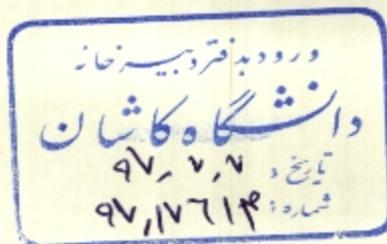 ورود به دفتر دبیرخانه
دانشگاه کاشان
تاریخ: ۹۷٫۷٫۷
شماره: ۹۷٫۱۷۶۱۴